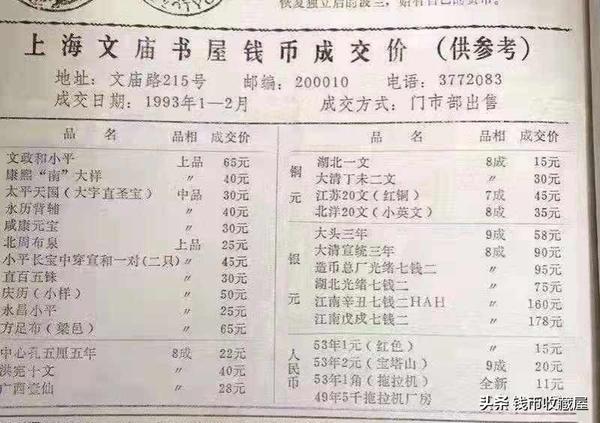 恢复独立后的波兰，始有自己的货币。
上海文庙书屋钱币成交价（供参考）
地址：文庙路215号 邮编：200010 电话：3772083
成交日期：1993年1—2月 成交方式：门市部出售
品名 品相 成交价
文政和小平 上品 65元
康熙“南”大样 〃 40元
太平天国（大字直圣宝） 中品 30元
永历背辅 〃 40元
咸康元宝 〃 30元
北周布泉 上品 25元
小平长宝中穿宣和一对(二只) 〃 45元
直百五铢 〃 30元
庆历（小样） 〃 50元
永昌小平 〃 25元
方足布（梁邑） 〃 65元
中心孔五厘五年 8成 22元
洪宪十文 〃 40元
广西壹仙 〃 28元
品名 品相 成交价
铜元
湖北一文 8成 15元
大清丁未二文 〃 30元
江苏20文（红铜） 7成 45元
北洋20文（小英文） 8成 35元
银元
大头三年 9成 58元
大清宣统三年 8成 90元
造币总厂光绪七钱二 〃 95元
湖北光绪七钱二 〃 75元
江南辛丑七钱二HAH 〃 160元
江南戊戌七钱二 〃 178元
人民币
53年1元（红色） 〃 15元
53年2元（宝塔山） 9成 20元
53年1角（拖拉机） 全新 11元
49年5千拖拉机厂房
头条 钱币收藏屋